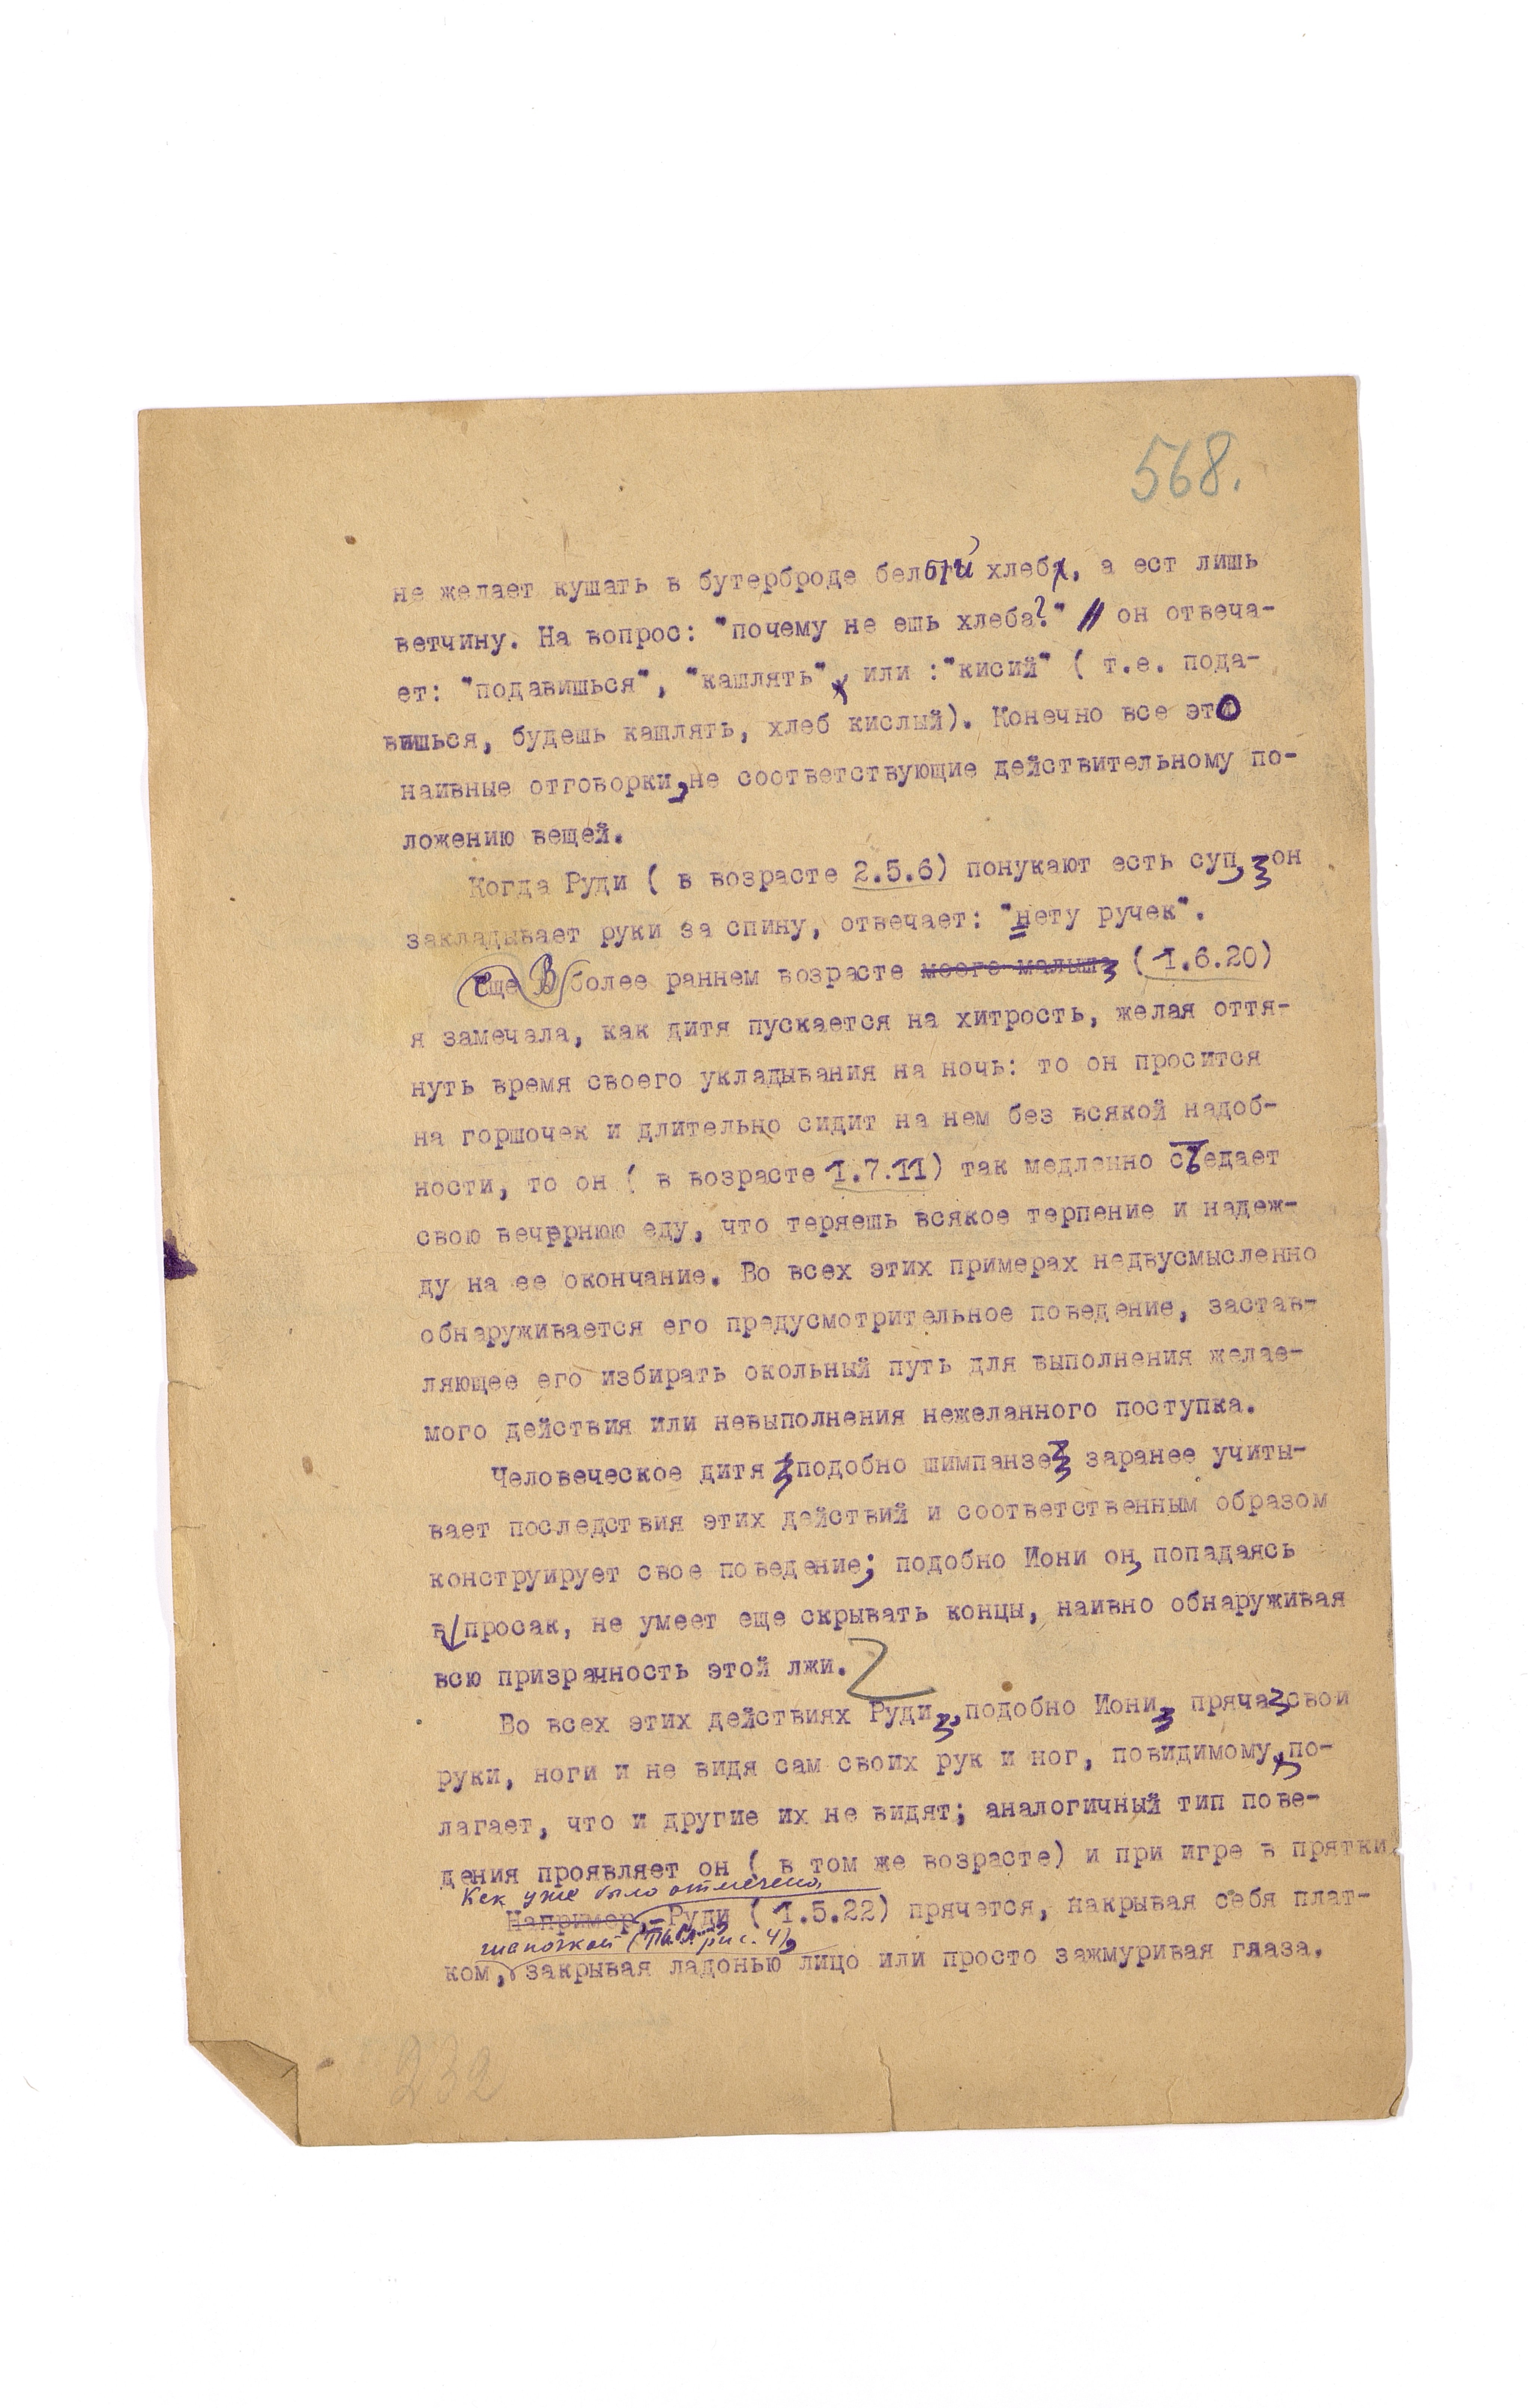 568.
не желает кушать в бутерброде белый хлеб, а ест лишь
ветчину. На вопрос: "почему не ешь хлеба?" // он отвеча-
ет: "подавишься", "кашлять", или :"кисий" ( т.е. пода-
вишься, будешь кашлять, хлеб кислый). Конечно все это
наивные отговорки, не соответствующие действительному по-
ложению вещей.
Когда Руди ( в возрасте 2.5.6) понукают есть суп, он
закладывает руки за спину, отвечает: "нету ручек".
Еще В более раннем возрасте моего малыша ( 1.6.20)
я замечала, как дитя пускается на хитрость, желая оття-
нуть время своего укладывания на ночь: то он просится
на горшочек и длительно сидит на нем без всякой надоб-
ности, то он ( в возрасте 1.7.11) так медленно съедает
свою вечернюю еду, что теряешь всякое терпение и надеж-
ду на ее окончание. Во всех этих примерах недвусмысленно
обнаруживается его предусмотрительное поведение, застав-
ляющее его избирать окольный путь для выполнения желае-
мого действия или невыполнения нежеланного поступка.
Человеческое дитя, подобно шимпанзе, заранее учиты-
вает последствия этих действий и соответственным образом
конструирует свое поведение; подобно Иони он, попадаясь
в просак, не умеет еще скрывать концы, наивно обнаруживая
всю призрачность этой лжи.
Во всех этих действиях Руди, подобно Иони, пряча свои
руки, ноги и не видя сам своих рук и ног, повидимому, по-
лагает, что и другие их не видят; аналогичный тип пове-
дения проявляет он ( в том же возрасте) и при игре в прятки.
Как уже было отмечено,
Например,-Руди ( 1.5.22) прячется, накрывая себя плат-
шапочкой (Табл. рис. 4),
ком, закрывая ладонью лицо или просто зажмуривая глаза.
232